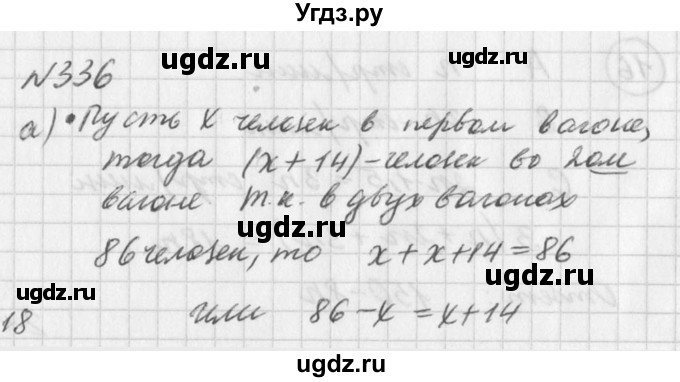 Угдз.ру
№336
а) • Пусть х человек в первом вагоне,
тогда (х+14)-человек во 2ом
вагоне т.к. в двух вагонах
86 человек, то х+х+14=86
18 или 86-х=х+14
ugdz.ru
ugdz.ru
ugdz.ru
ugdz.ru
ugdz.ru
ugdz.ru
ugdz.ru
ugdz.ru